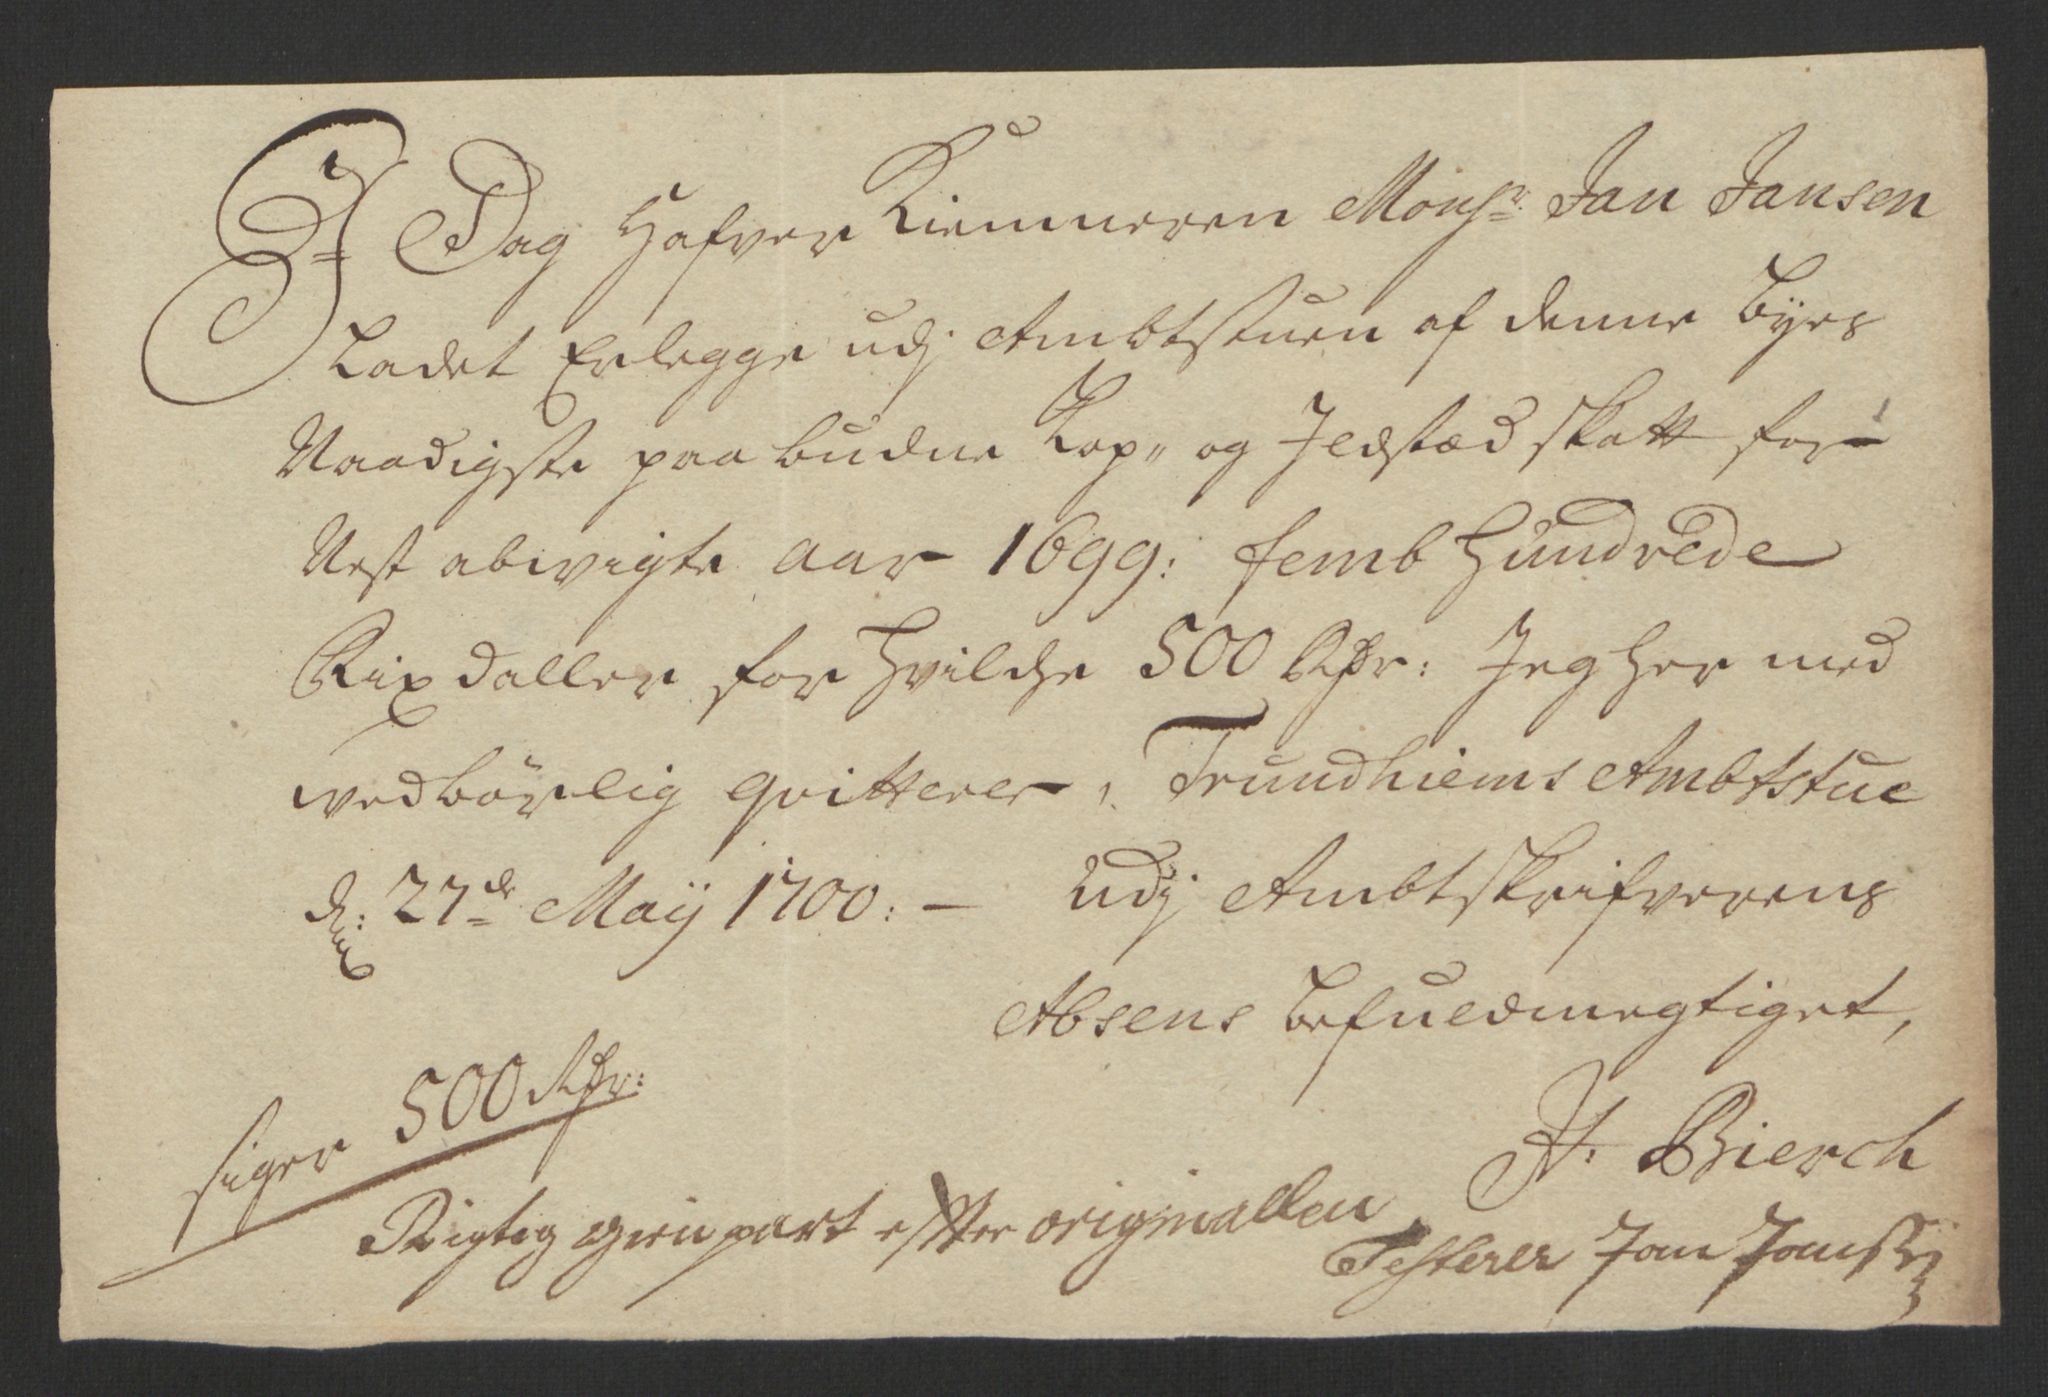 I Dag Hafver Kiemneren Monsr: Jan Jansen
Ladet Erlegge udj Ambtstuen af denne Byes
Naadigste paabudne Kop- og Ildstæd skatt for
Nest abwigte aar 1699: femb Hundrede
Rixdaller for Hvilche 500 Rdr: Jeg her med
wedbörlig qvitterer, Trundhiems Ambtstue
d: 27de Maij 1700:— Udj Ambtskrifverens
Absens befuldmegtiget,
siger 500 Rdr:
A: Bierch
Rigtig gienpart efter originallen
Testerer Jan Jansen